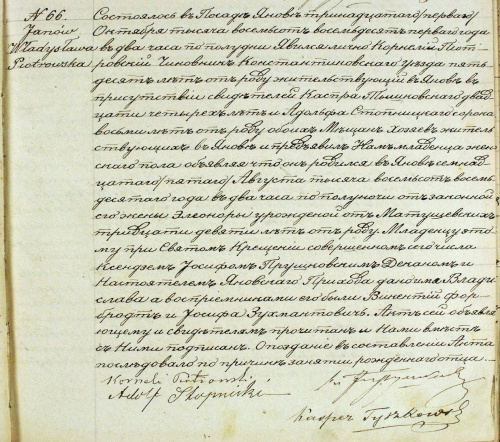 № 66.
Janów
Władysława
Piotrowska
Состоялось въ Посадѣ Яновѣ тринадцатаго /перваго/
Октября тысяча восемьсотъ восемьдесятъ перваго года
въ два часа по полудни Явился лично Корнелій Піот-
ровскій Чиновникъ Константиновскаго уѣзда пять-
десятъ лѣтъ отъ роду жительствующій въ Яновѣ въ
присутствіи свидѣтелей Каспра Тышковскаго двад-
цати четырехъ лѣтъ и Адольфа Стопницкаго сорока
восьми лѣтъ отъ роду обоихъ Мѣщанъ Хозяевъ житель-
ствующихъ въ Яновѣ и предъявилъ Намъ младенца жен-
скаго пола объявляя что онъ родился въ Яновѣ семнад-
цатаго /пятаго/ Августа тысяча восемьсотъ восемь-
десятаго года въ два часа по полуночи отъ законной
его жены Элеоноры урожденной отъ Матушевскихъ
тридцати девяти лѣтъ отъ роду Младенцу это-
му при Святомъ Крещеніи совершенномъ сего числа
Ксендземъ Іосифомъ Деканомъ и
Настоятелемъ Яновскаго Прихода дано имя Влади-
слава а воспріемниками его были Викентій Фор-
бродтъ и Іосифа Зухмантовичъ. Актъ сей объявля-
ющему и свидѣтелямъ прочитанъ и Нами вмѣстѣ
съ Ними подписанъ. Опозданіе въ составленіи Акта
послѣдовало по причинѣ занятій рожденнаго отца
Korneli Piotrowski
Adolf Stopnicki
Kasper Tyszkowski